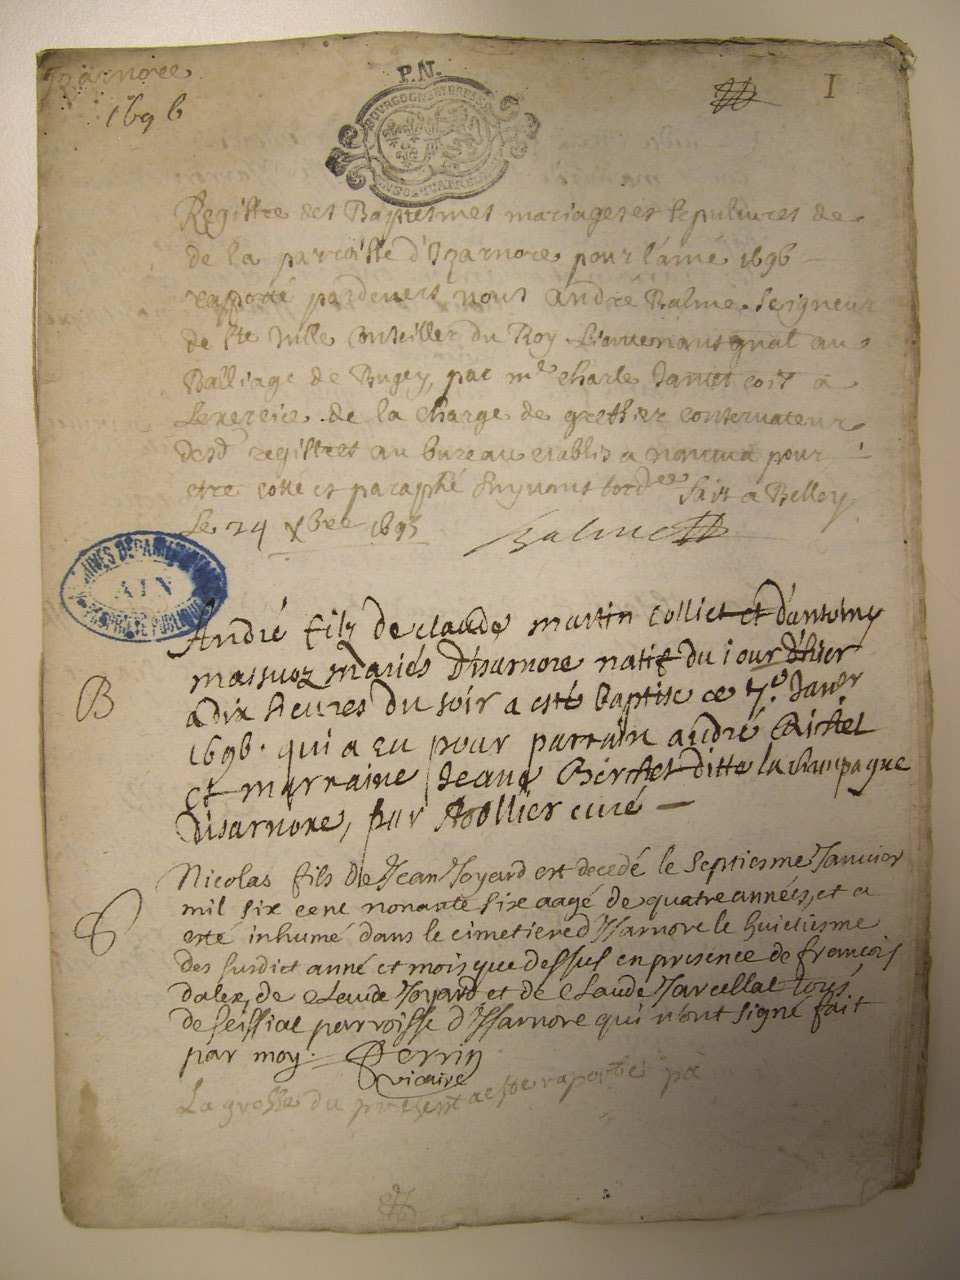 Izarnore
1696
P.N.
I
Registre des Baptesmes mariages et sepultures de
de la parroisse d'Izarnore pour l'ané 1696
raporté pardevers nous André Balme Seigneur
de Ste Julle Conseiller du Roy Lieutenant gnal au
Balliage de Bugey, par me Charle
Lexersice de la charge de greffier conservateur
desd registres au bureau establis a Nantua pour
etre cotté et paraphé Suyvant lord Fait a Belley
Le 24 Xbre 1695
Balme
ARCHIVES DÉPARTEMENTALES
AIN
PROPRIÉTÉ PUBLIQUE
B
André filz de claude martin Colliet et d'antoiny
massuoz mariés disarnore natif du iour d'hier
a dix heures du soir a esté baptisé ce 7e Janvr
1696. qui a eu pour parrain andré
et marraine Jeane Berchet ditte la champagne
disarnore, par curé
S
Nicolas fils de Jean Joyard est decedé le septiesme Janvier
mil six cent nonante six aagé de quatre années, et a
esté inhumé dans le cimetiere d'Isarnore le huictiesme
des susdict anné et mois que dessus en presence de francois
dalex, de Claude Joyard et de Claude Jarcellat tous
de seissiat perroisse d'Issarnore qui n'ont signé fait
par moy. Perrin
vicaire
La grosse du present a este raportée pa